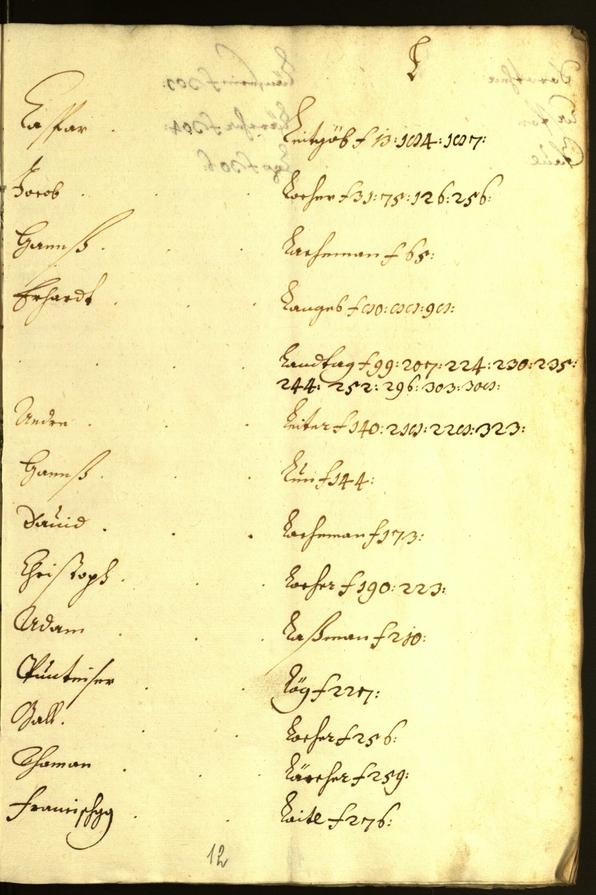 L
Caspar Leitgöb f 13: 184: 187:
Jacob Locher f 31: 75: 126: 256:
Hannß Lacheman f 65:
Erhardt Langeb f 80: 88: 98:
Landtag f 99: 207: 224: 230: 235:
244: 252: 296: 303: 308:
Andre Leiter f 140: 218: 228: 323:
Hannß f 144:
Dauid Lacheman f 173:
Christoph Locher f 190: 223:
Adam Laßman f 210:
Lög f 227:
Gall Locher f 256:
Thoman Lärcher f 259:
Francischgg Laite f 276:
12